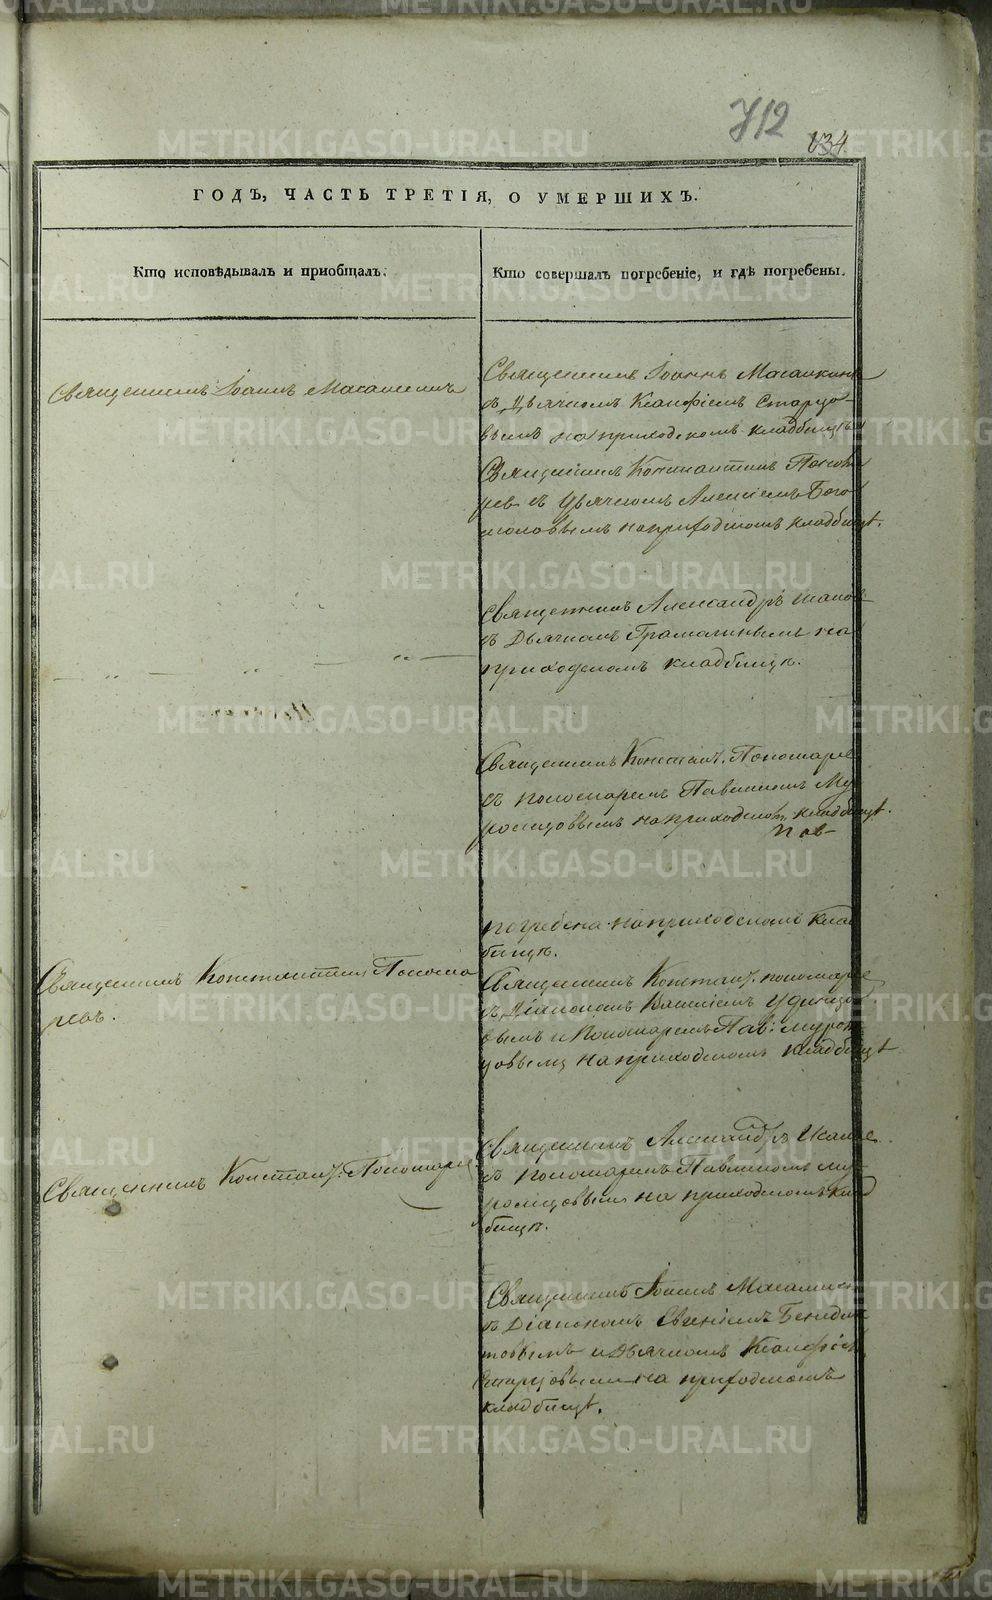 712
134
ГОДЪ, ЧАСТЬ ТРЕТІЯ, О УМЕРШИХЪ.
Кто исповѣдывалъ и приобщалъ.
Кто совершалъ погребеніе, и гдѣ погребены.
Священникъ Іоаннъ
Священникъ Іоаннъ
съ Дьячкомъ Старцо-
вымъ на приходскомъ кладбищѣ
Священникъ Константинъ Понома
ревъ съ Дьячкомъ Алексіемъ Бого
моловымъ на приходскомъ кладбищѣ.
Священникъ Александръ
съ Дьячкомъ на
приходскомъ кладбищѣ.
Священникъ Констант. Пономаре
съ пономаремъ Павлиномъ Му
ромцовымъ на приходском кладбищѣ.
погребена на приходскомъ клад
бищѣ.
Священникъ Константинъ Понома
ревъ.
Священникъ Констант. пономаре
съ Діакономъ Василіемъ Удинцо
вымъ и Пономаремъ Пав: Муром
цовымъ на приходскомъ кладбищѣ
Священникъ Констант. Пономаре
Священникъ Александръ
съ пономаремъ Павлиномъ Му
ромцовымъ на приходскомъ клад
бищѣ.
Священникъ Іоаннъ
съ Діакономъ Евгеніемъ Бенедик
товымъ и Дьячкомъ
Старцовымъ на приходскомъ
кладбищѣ.
METRIKI.GASO-URAL.RU